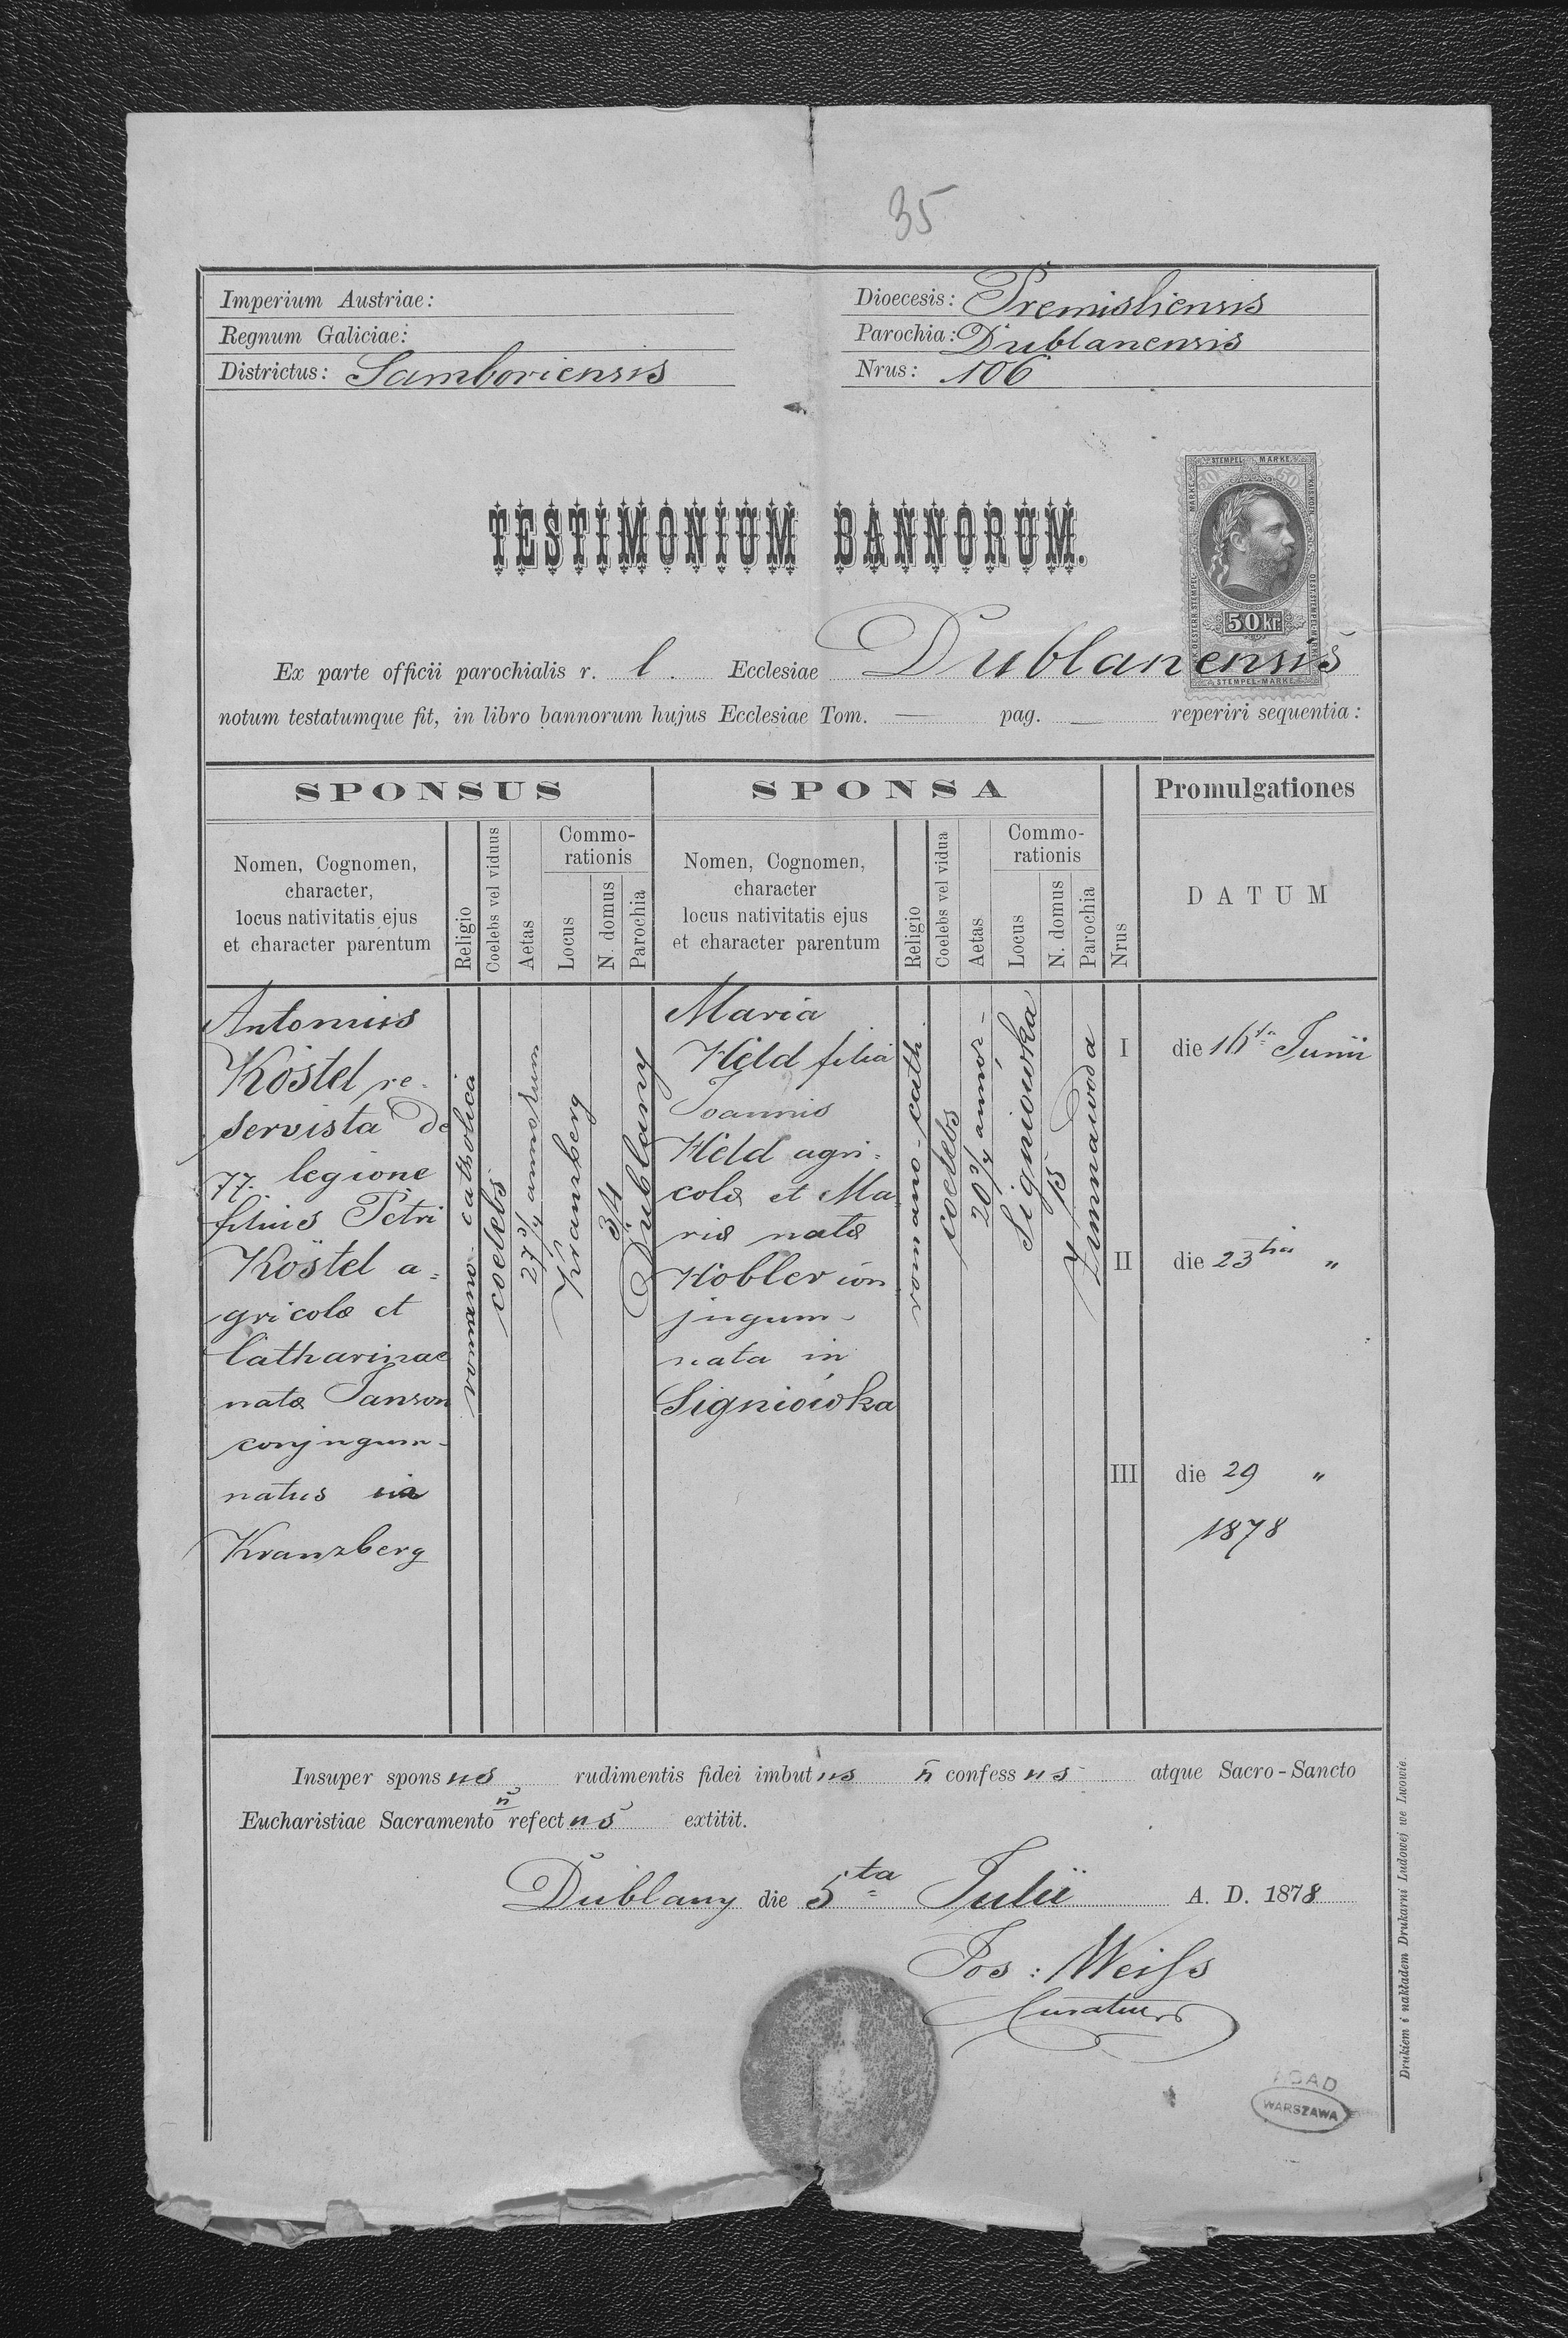 35
Imperium Austriae:
Regnum Galiciae:
Districtus: Samboriensis
Dioecesis: Premisliensis
Parochia: Dublanensis
Nrus: 106
STEMPEL MARKE
50 kr
STEMPEL-MARKE
TESTIMONIUM BANNORUM.
Ex parte officii parochialis r. l. Ecclesiae Dublanensis
notum testatumque fit, in libro bannorum hujus Ecclesiae Tom. — pag. — reperiri sequentia:
SPONSUS
Nomen, Cognomen,
character,
locus nativitatis ejus
et character parentum
Religio
Coelebs vel viduus
Aetas
Commo-
rationis
Locus
N. domus
Parochia
SPONSA
Nomen, Cognomen,
character
locus nativitatis ejus
et character parentum
Religio
Coelebs vel vidua
Aetas
Commo-
rationis
Locus
N. domus
Parochia
Nrus
Promulgationes
DATUM
Antonius
Köstel re-
servista de
77. legione
filius Petri
Köstel a=
gricolæ et
Catharinae
natæ Janson
conjugum-
natus in
Kranzberg
romano catholica
coelebs
27 3/4 annorum
Kranzberg
34
Dublany
Maria
Held filia
Joannis
Held agri-
colæ et Ma
riæ natæ
Kobler con
jugum-
nata in
Signiówka
romano-cath.
coelebs
20 3/4 annor-
Signiowka
15
Zimnawoda
I die 16ta Junii
II die 23tia "
III die 29 "
1878
Insuper sponsus rudimentis fidei imbutus n̄ confessus atque Sacro-Sancto
Eucharistiae Sacramento n̄ refectus extitit.
Dublany die 5ta Julii A. D. 1878
Jos: Weiſs
Curatus
ADAD
WARSZAWA
Drukiem i nakładem Drukarni Ludowej we Lwowie.